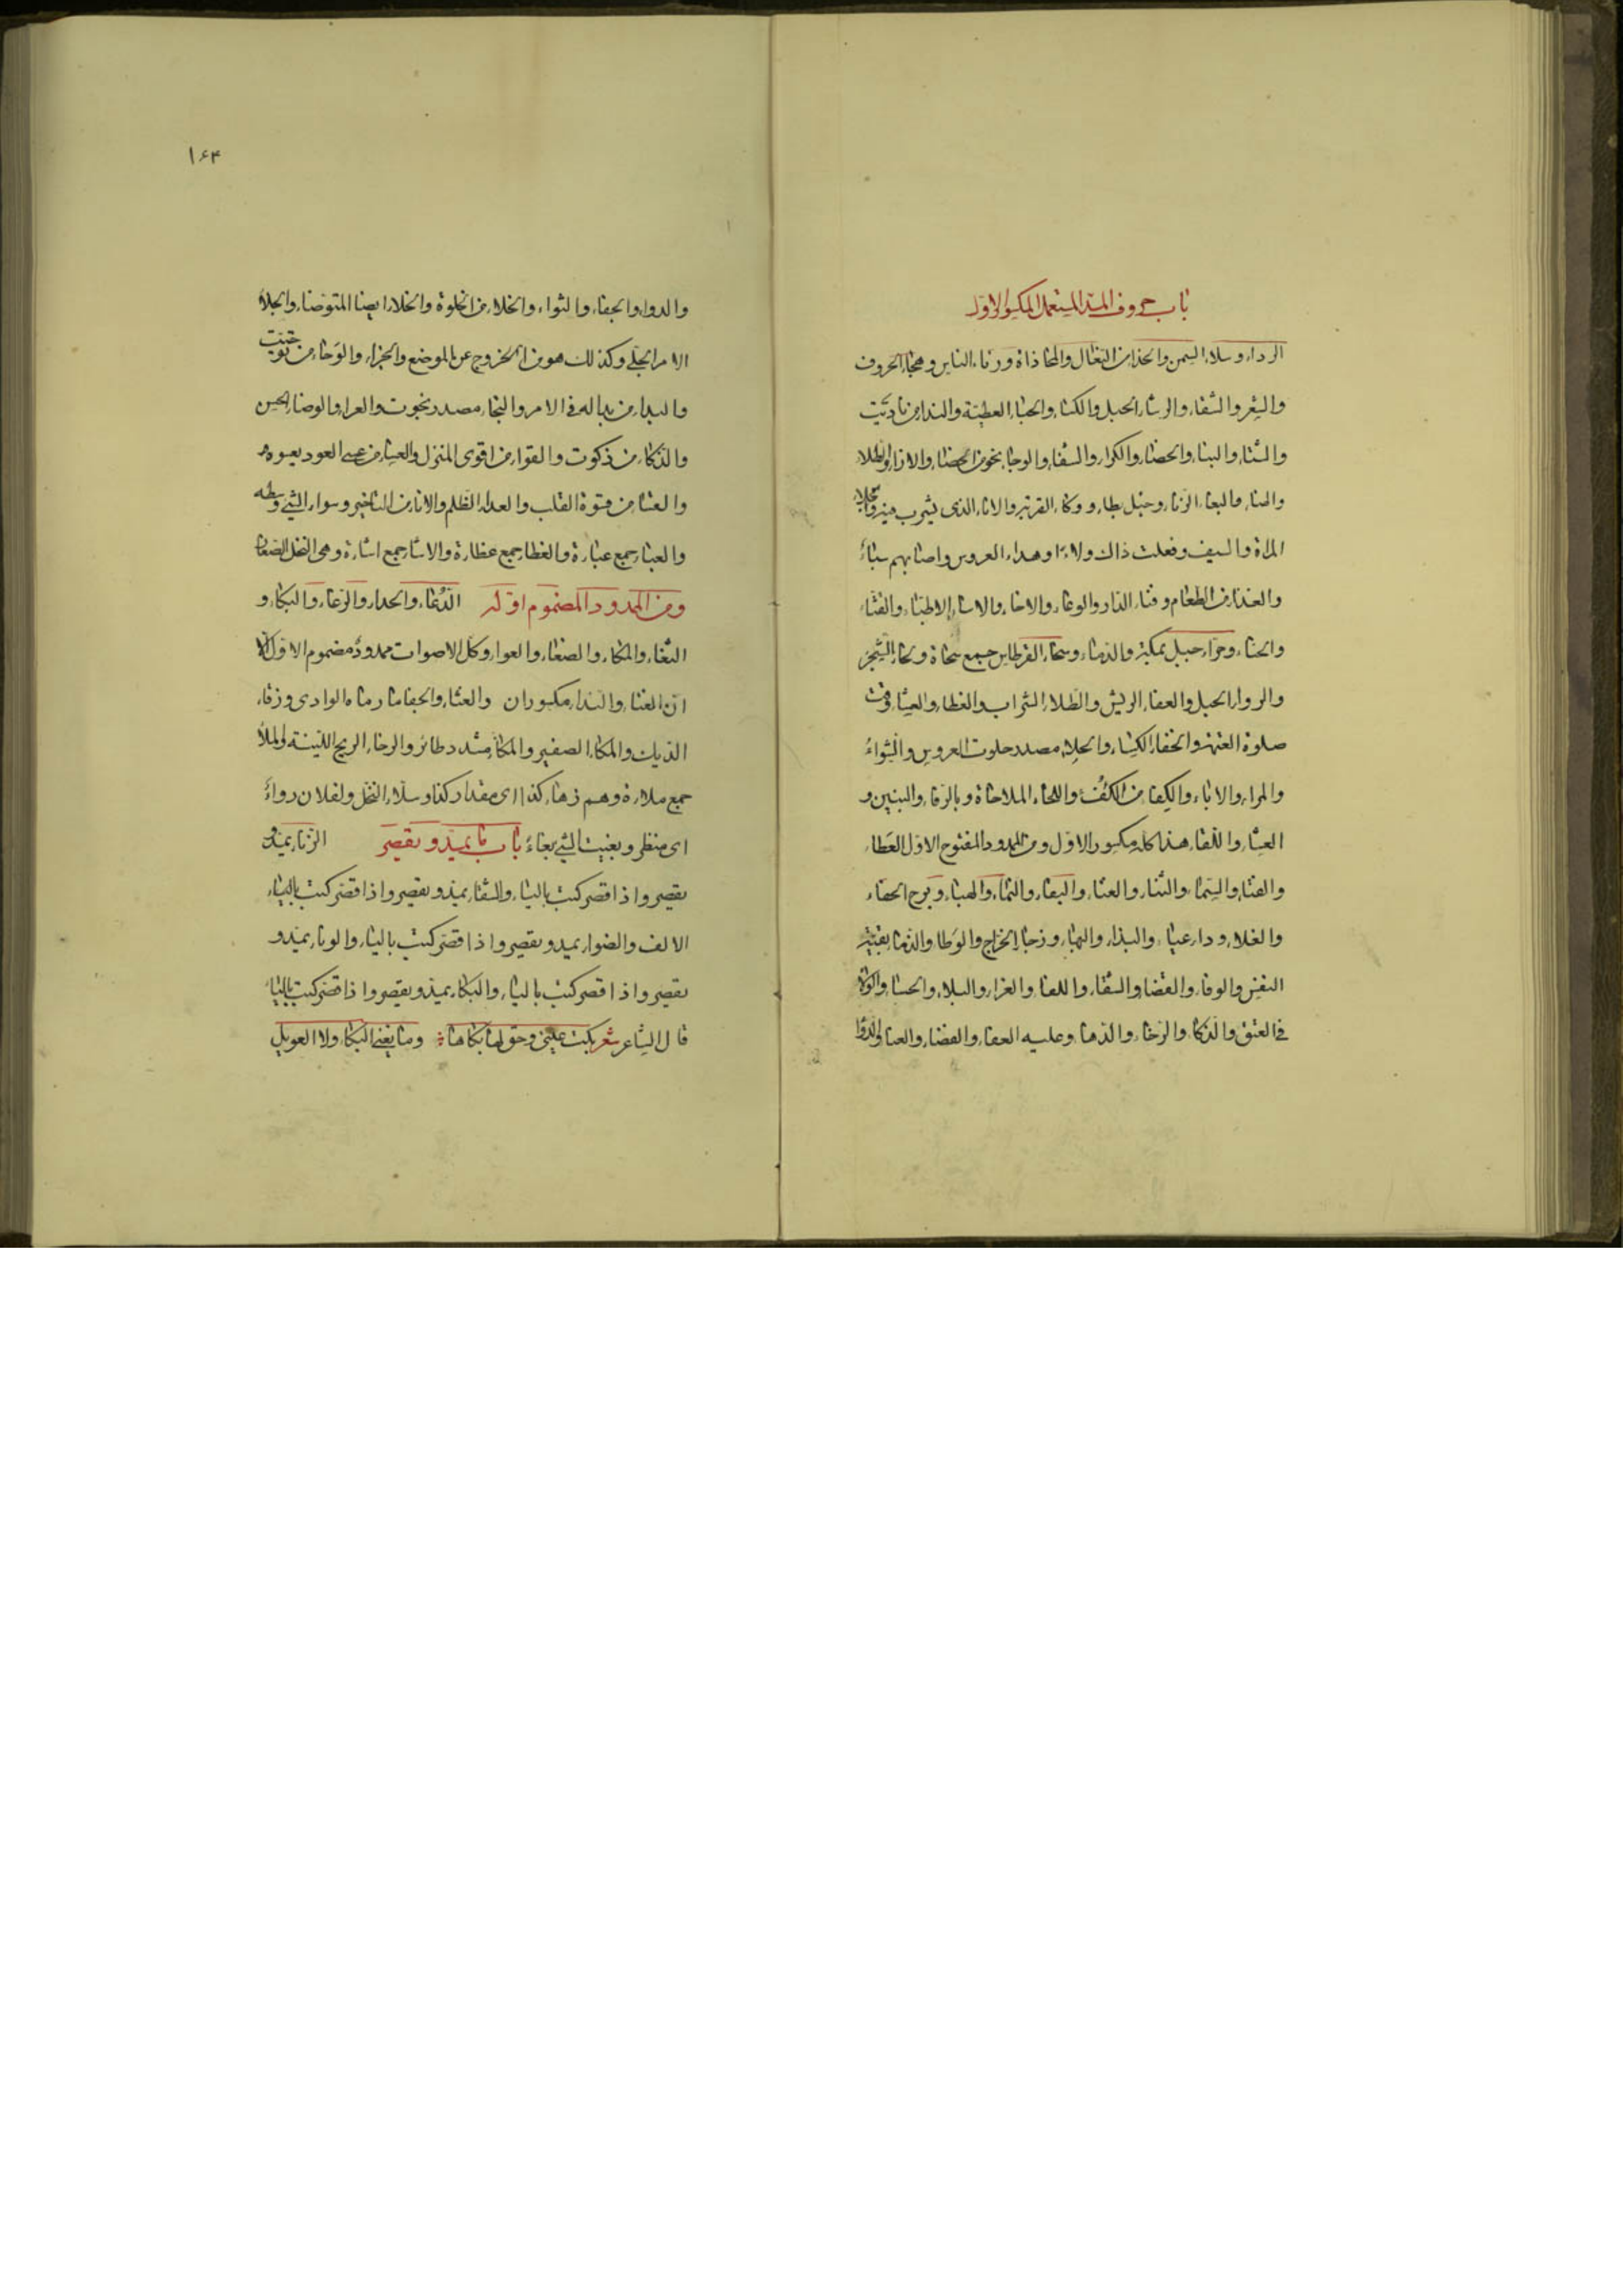 باب حروف المد المستعمل المكسور الاول
الرداء وسلاء السمن والحذاء من النعال والمحاذاة ورثاء الناس وهجاء الحروف
والشعر والشفاء والرشاء الحبل والكساء والحباء العطية والنداء من ناديت
والشتاء والبناء والخصاء والكراء والشفاء والوجاء نحو من الخصاء والازاء والطلاء
والهناء والبغاء الزناء ووكاء القربة والاناء الذي يشرب فيه وجلاء
المراة والسيف وفعلت ذاك ولاء وهداء العروس واصابهم سباء
والغذاء من الطعام وفناء الدار والوعاء والاخاء والاساء الاطباء والقثاء
والحناء وحراء جبل بمكة والدماء وسحاء القرطاس جمع سحاة ولحاء الشجر
والرواء الحبل والعفاء الريش والطلاء الشراب والغطاء والعشاء وقت
صلوة العتمة والخفاء الكساء والجلاء مصدر جلوت العروس والشواء
والمراء والاباء والكفاء من الكفؤ واللحاء الملاحاة وبالرفاء والبنين و
العشاء واللقاء هذا كله مكسور الاول ومن الممدود المفتوح الاول العطاء
والفناء والسماء والثناء والعناء والبقاء والنماء والهباء وبرح الخفاء
والغلاء وداء عياء والبذاء والبهاء وزجاء الخراج والوطاء والذماء بقية
النفس والوفاء والقضاء والشقاء واللفاء والعزاء والبلاء والحساء والولاء
في العتق والذكاء والرخاء والدهاء وعليه العفاء والفضاء والعباء والدواء
١٦٣
والدواء والجفاء والثواء والخلاء من الخلوة والخلاء ايضا المتوضا والجلاء
الامر الجلي وكذلك هو من الخروج عن الموضع والجزاء والوحاء من توحيت
والبداء من بدا له في الامر والنجاء مصدر نجوت والعراء والوضاء الحسن
والذكاء من ذكوت والقواء من اقوى المنزل والعساء من عسى العود يعسو
والعشاء من قسوة القلب والعداء الظلم والاناء من التاخير وسواء الشئ وسطه
والعباء جمع عباءة والعظاء جمع عظاءة والاشاء جمع اشاءة وهي النخل الصغار
ومن الممدود المضموم اوله الدعاء والحداء والرغاء والبكاء و
الثغاء والمكاء والصغاء والعواء وكل الاصوات ممدود مضموم الاول الا
ان الغناء والنداء مكسوران والغثاء والجفاء ما رماه الوادي وزقاء
الديك والمكاء الصفير والمكاء مشدد طائر والرخاء الريح اللينة والملاء
جمع ملاءة وهم زهاء كذا اى مقدار كذا وسلاء النخل ولفلان رواء
اى منظر وبغيت الشئ بغاء باب ما يمد ويقصر الزناء يمد و
يقصر واذا قصر كتب بالياء والشقاء يمد ويقصر واذا قصر كتب بالياء
الالف والضواء يمد ويقصر واذا قصر كتب بالياء والوناء يمد و
يقصر واذا قصر كتب بالياء والبكاء يمد ويقصر واذا قصر كتب بالياء
قال الشاعر شعر بكت عيني وحق لها بكاها وما يغني البكاء ولا العويل